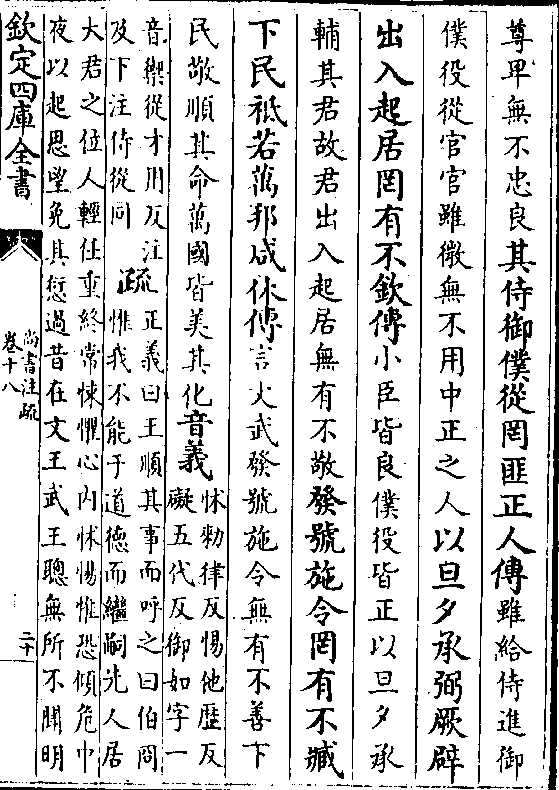 尊卑無不忠良其侍御僕從罔匪正人傳雖給侍進御
僕役從官官雖微無不用中正之人以旦夕承弼厥辟
出入起居罔有不欽傳小臣皆良僕役皆正以旦夕承
輔其君故君出入起居無有不敬發號施令罔有不臧
下民祗若萬邦咸休傳言文武發號施令無有不善下
民敬順其命萬國皆美其化音義怵勑律反惕他歴反
礙五代反御如字一
音禦從才用反注
及下注侍從同
疏正義曰王順其事而呼之曰伯冏
惟我不能于道德而繼嗣先人居
大君之位人輕任重終常悚懼心内怵惕惟恐傾危中
夜以起思望免其愆過昔在文王武王聰無所不聞明
欽定四庫全書
尚書注疏
卷十八
二十